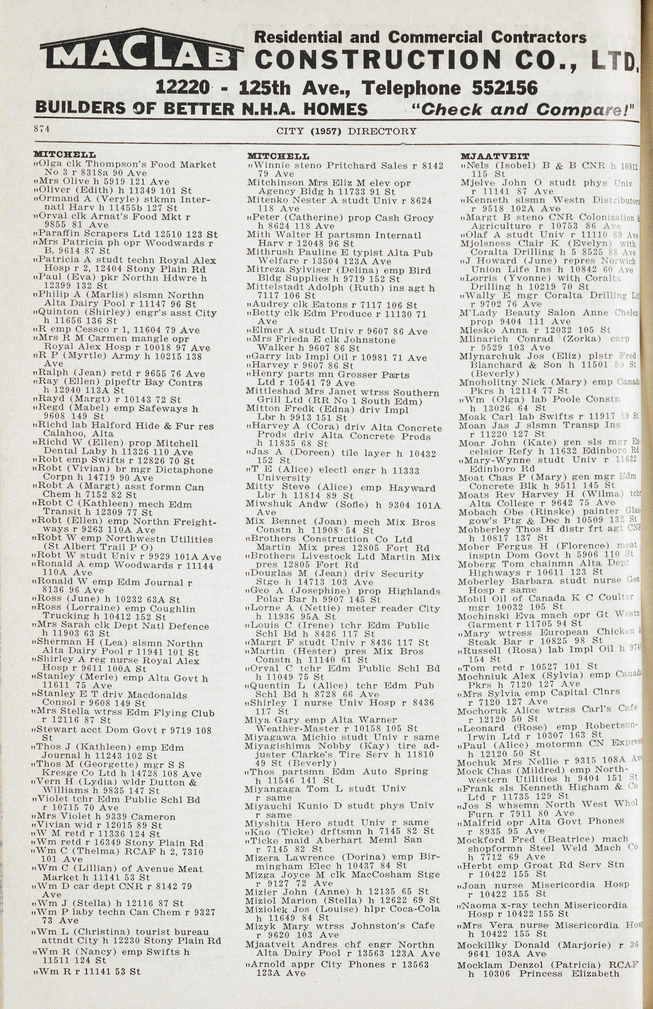 MACLAB
Residential and Commercial Contractors
CONSTRUCTION CO., LTD.
12220 - 125th Ave., Telephone 552156
BUILDERS OF BETTER N.H.A. HOMES "Check and Compare!"
874
CITY (1957) DIRECTORY
MITCHELL
"Olga clk Thompson's Food Market
No 3 r 8318a 90 Ave
"Mrs Olive h 5919 121 Ave
"Oliver (Edith) h 11349 101 St
"Ormand A (Veryle) stkmn Inter-
natl Harv h 11455b 127 St
"Orval clk Arnat's Food Mkt r
9855 81 Ave
"Paraffin Scrapers Ltd 12510 123 St
"Mrs Patricia ph opr Woodwards r
B, 9614 87 St
"Patricia A studt techn Royal Alex
Hosp r 2, 12404 Stony Plain Rd
"Paul (Eva) pkr Northn Hdwre h
12399 132 St
"Philip A (Marlis) slsmn Northn
Alta Dairy Pool r 11147 96 St
"Quinton (Shirley) engr's asst City
h 11656 136 St
"R emp Cessco r 1, 11604 79 Ave
"Mrs R M Carmen mangle opr
Royal Alex Hosp r 10018 97 Ave
"R P (Myrtle) Army h 10215 138
Ave
"Ralph (Jean) retd r 9655 76 Ave
"Ray (Ellen) pipeftr Bay Contrs
h 12940 113A St
"Rayd (Margt) r 10143 72 St
"Regd (Mabel) emp Safeways h
9608 149 St
"Richd lab Halford Hide & Fur res
Calahoo, Alta
"Richd W (Ellen) prop Mitchell
Dental Laby h 11326 110 Ave
"Robt emp Swifts r 12826 70 St
"Robt (Vivian) br mgr Dictaphone
Corpn h 14719 90 Ave
"Robt A (Margt) asst formn Can
Chem h 7152 82 St
"Robt C (Kathleen) mech Edm
Transit h 12309 77 St
"Robt (Ellen) emp Northn Freight-
ways r 9263 110A Ave
"Robt W emp Northwestn Utilities
(St Albert Trail P O)
"Robt W studt Univ r 9929 101A Ave
"Ronald A emp Woodwards r 11144
110A Ave
"Ronald W emp Edm Journal r
8136 96 Ave
"Ross (June) h 10232 63A St
"Ross (Lorraine) emp Coughlin
Trucking h 10412 152 St
"Mrs Sarah clk Dept Natl Defence
h 11903 63 St
"Sherman H (Lea) slsmn Northn
Alta Dairy Pool r 11941 101 St
"Shirley A reg nurse Royal Alex
Hosp r 9611 100A St
"Stanley (Merle) emp Alta Govt h
11611 75 Ave
"Stanley E T driv Macdonalds
Consol r 9608 149 St
"Mrs Stella wtrss Edm Flying Club
r 12116 87 St
"Stewart acct Dom Govt r 9719 108
St
"Thos J (Kathleen) emp Edm
Journal h 11243 102 St
"Thos M (Georgette) mgr S S
Kresge Co Ltd h 14728 108 Ave
"Vern H (Lydia) wldr Dutton &
Williams h 9835 147 St
"Violet tchr Edm Public Schl Bd
r 10715 70 Ave
"Mrs Violet h 9339 Cameron
"Vivian wid r 12015 89 St
"W M retd r 11336 124 St
"Wm retd r 16349 Stony Plain Rd
"Wm C (Thelma) RCAF h 2, 7310
101 Ave
"Wm C (Lillian) of Avenue Meat
Market h 11141 53 St
"Wm D car dept CNR r 8142 79
Ave
"Wm J (Stella) h 12116 87 St
"Wm P laby techn Can Chem r 9327
73 Ave
"Wm L (Christina) tourist bureau
attndt City h 12230 Stony Plain Rd
"Wm R (Nancy) emp Swifts h
11511 124 St
"Wm R r 11141 53 St
MITCHELL
"Winnie steno Pritchard Sales r 8142
79 Ave
Mitchinson Mrs Eliz M elev opr
Agency Bldg h 11733 91 St
Mitenko Nester A studt Univ r 8624
118 Ave
"Peter (Catherine) prop Cash Grocy
h 8624 118 Ave
Mith Walter H partsmn Internatl
Harv r 12048 96 St
Mithrush Pauline E typist Alta Pub
Welfare r 13504 123A Ave
Mitreza Sylviser (Delina) emp Bird
Bldg Supplies h 9719 152 St
Mittelstadt Adolph (Ruth) ins agt h
7117 106 St
"Audrey clk Eatons r 7117 106 St
"Betty clk Edm Produce r 11130 71
Ave
"Elmer A studt Univ r 9607 86 Ave
"Mrs Frieda E clk Johnstone
Walker h 9607 86 St
"Garry lab Impl Oil r 10981 71 Ave
"Harvey r 9607 86 St
"Henry parts mn Grosser Parts
Ltd r 10541 79 Ave
Mittleshad Mrs Janet wtrss Southern
Grill Ltd (RR No 1 South Edm)
Mitton Predk (Edna) driv Impl
Lbr h 9913 151 St
"Harvey A (Cora) driv Alta Concrete
Prods driv Alta Concrete Prods
h 11835 68 St
"Jas A (Doreen) tile layer h 10432
152 St
"T E (Alice) electl engr h 11333
University
Mitty Steve (Alice) emp Hayward
Lbr h 11814 89 St
Miwshuk Andw (Sofie) h 9304 101A
Ave
Mix Bennet (Joan) mech Mix Bros
Constn h 11908 54 St
"Brothers Construction Co Ltd
Martin Mix pres 12805 Fort Rd
"Brothers Livestock Ltd Martin Mix
pres 12805 Fort Rd
"Douglas M (Jean) driv Security
Stge h 14713 103 Ave
"Geo A (Josephine) prop Highlands
Polar Bar h 9907 145 St
"Lorne A (Nettie) meter reader City
h 11936 95A St
"Louis C (Irene) tchr Edm Public
Schl Bd h 8436 117 St
"Margt F studt Univ r 8436 117 St
"Martin (Hester) pres Mix Bros
Constn h 11140 61 St
"Orval C tchr Edm Public Schl Bd
h 11049 75 St
"Quentin L (Alice) tchr Edm Pub
Schl Bd h 8728 66 Ave
"Shirley I nurse Univ Hosp r 8436
117 St
Miya Gary emp Alta Warner
Weather-Master r 10158 105 St
Miyagawa Michio studt Univ r same
Miyagishima Nobby (Kay) tire ad-
juster Clarke's Tire Serv h 11810
49 St (Beverly)
"Thos partsmn Edm Auto Spring
h 11546 141 St
Miyangaga Tom L studt Univ
r same
Miyauchi Kunio D studt phys Univ
r same
Miyshita Hero studt Univ r same
"Kao (Ticke) drftsmn h 7145 82 St
"Ticke maid Aberhart Meml San
r 7145 82 St
Mizera Lawrence (Dorina) emp Bir-
mingham Elec h 10437 84 St
Mizga Joyce M clk MacCosham Stge
r 9127 72 Ave
Mizier John (Anne) h 12135 65 St
Miziol Marion (Stella) h 12622 69 St
Miziolek Jos (Louise) hlpr Coca-Cola
h 11649 84 St
Mizyk Mary wtrss Johnston's Cafe
r 9620 103 Ave
Mjaatveit Andres chf engr Northn
Alta Dairy Pool r 13563 123A Ave
"Arnold appr City Phones r 13563
123A Ave
MJAATVEIT
"Nels (Isobel) B & B CNR h 10812
115 St
Mjelve John O studt phys Univ
r 11141 87 Ave
"Kenneth slsmn Westn Distributors
r 9518 102A Ave
"Margt B steno CNR Colonization &
Agriculture r 10753 86 Ave
"Olaf A studt Univ r 11110 89 Ave
Mjolsness Clair K (Evelyn) with
Coralta Drilling h 5 8525 88 Ave
"J Howard (June) repres Norwich
Union Life Ins h 10842 60 Ave
"Lorris (Yvonne) with Coralta
Drilling h 10219 70 St
"Wally E mgr Coralta Drilling Ltd
r 9702 76 Ave
M'Lady Beauty Salon Anne Cheles
prop 9404 111 Ave
Mlesko Anna r 12032 105 St
Mlinarich Conrad (Zorka) carp
r 9529 103 Ave
Mlynarchuk Jos (Eliz) plstr Fred
Blanchard & Son h 11501 50 St
(Beverly)
Mnoholitny Nick (Mary) emp Canada
Pkrs h 12114 77 St
"Wm (Olga) lab Poole Constn
h 13026 64 St
Moak Carl lab Swifts r 11917 St
Moan Jas J slsmn Transp Ins
r 11220 127 St
Moar John (Kate) gen sls mgr Ex-
celsior Refy h 11632 Edinboro Rd
"Mary-Wynne studt Univ r 11632
Edinboro Rd
Moat Chas P (Mary) gen mgr Edm
Concrete Blk h 9511 145 St
Moats Rev Harvey H (Wilma) tchr
Alta College r 9642 75 Ave
Mobach Obe (Rinske) painter Glas-
gow's Ptg & Dec h 10509 132 St
Mobberley Thos H distr frt agt CNR
h 10817 137 St
Mober Fergus H (Florence) meat
insptn Dom Govt h 5906 110 St
Moberg Tom chainmn Alta Dept
Highways r 10611 123 St
Moberley Barbara studt nurse Gen
Hosp r same
Mobil Oil of Canada K C Coulter
mgr 10032 105 St
Mochinski Eva mach opr Gt Westn
Garment r 11705 94 St
"Mary wtress European Chicken &
Steak Bar r 10825 98 St
"Russell (Rosa) lab Impl Oil h
154 St
"Tom retd r 10527 101 St
Mochniuk Alex (Sylvia) emp Canada
Pkrs h 7120 127 Ave
"Mrs Sylvia emp Capital Clnrs
r 7120 127 Ave
Mochoruk Alice wtrss Carl's Cafe
r 12120 50 St
"Leonard (Rose) emp Robertson-
Irwin Ltd r 10307 163 St
"Paul (Alice) motormn CN Express
h 12120 50 St
Mochuk Mrs Nellie r 9315 108A Ave
Mock Chas (Mildred) emp North-
western Utilities h 9404 151 St
"Frank sls Kenneth Higham & Co
Ltd r 11735 129 St
"Jos S whsemn North West Whol
Furn r 7911 80 Ave
"Malfrid opr Alta Govt Phones
r 8935 95 Ave
Mockford Fred (Beatrice) mach
shopformn Steel Weld Mach Co
h 7712 69 Ave
"Herbt emp Groat Rd Serv Stn
r 10422 155 St
"Joan nurse Misericordia Hosp
r 10422 155 St
"Naoma x-ray techn Misericordia
Hosp r 10422 155 St
"Mrs Vera nurse Misericordia Hosp
h 10422 155 St
Mockillky Donald (Marjorie) r 36
9641 103A Ave
Mocklam Denzol (Patricia) RCAF
h 10306 Princess Elizabeth